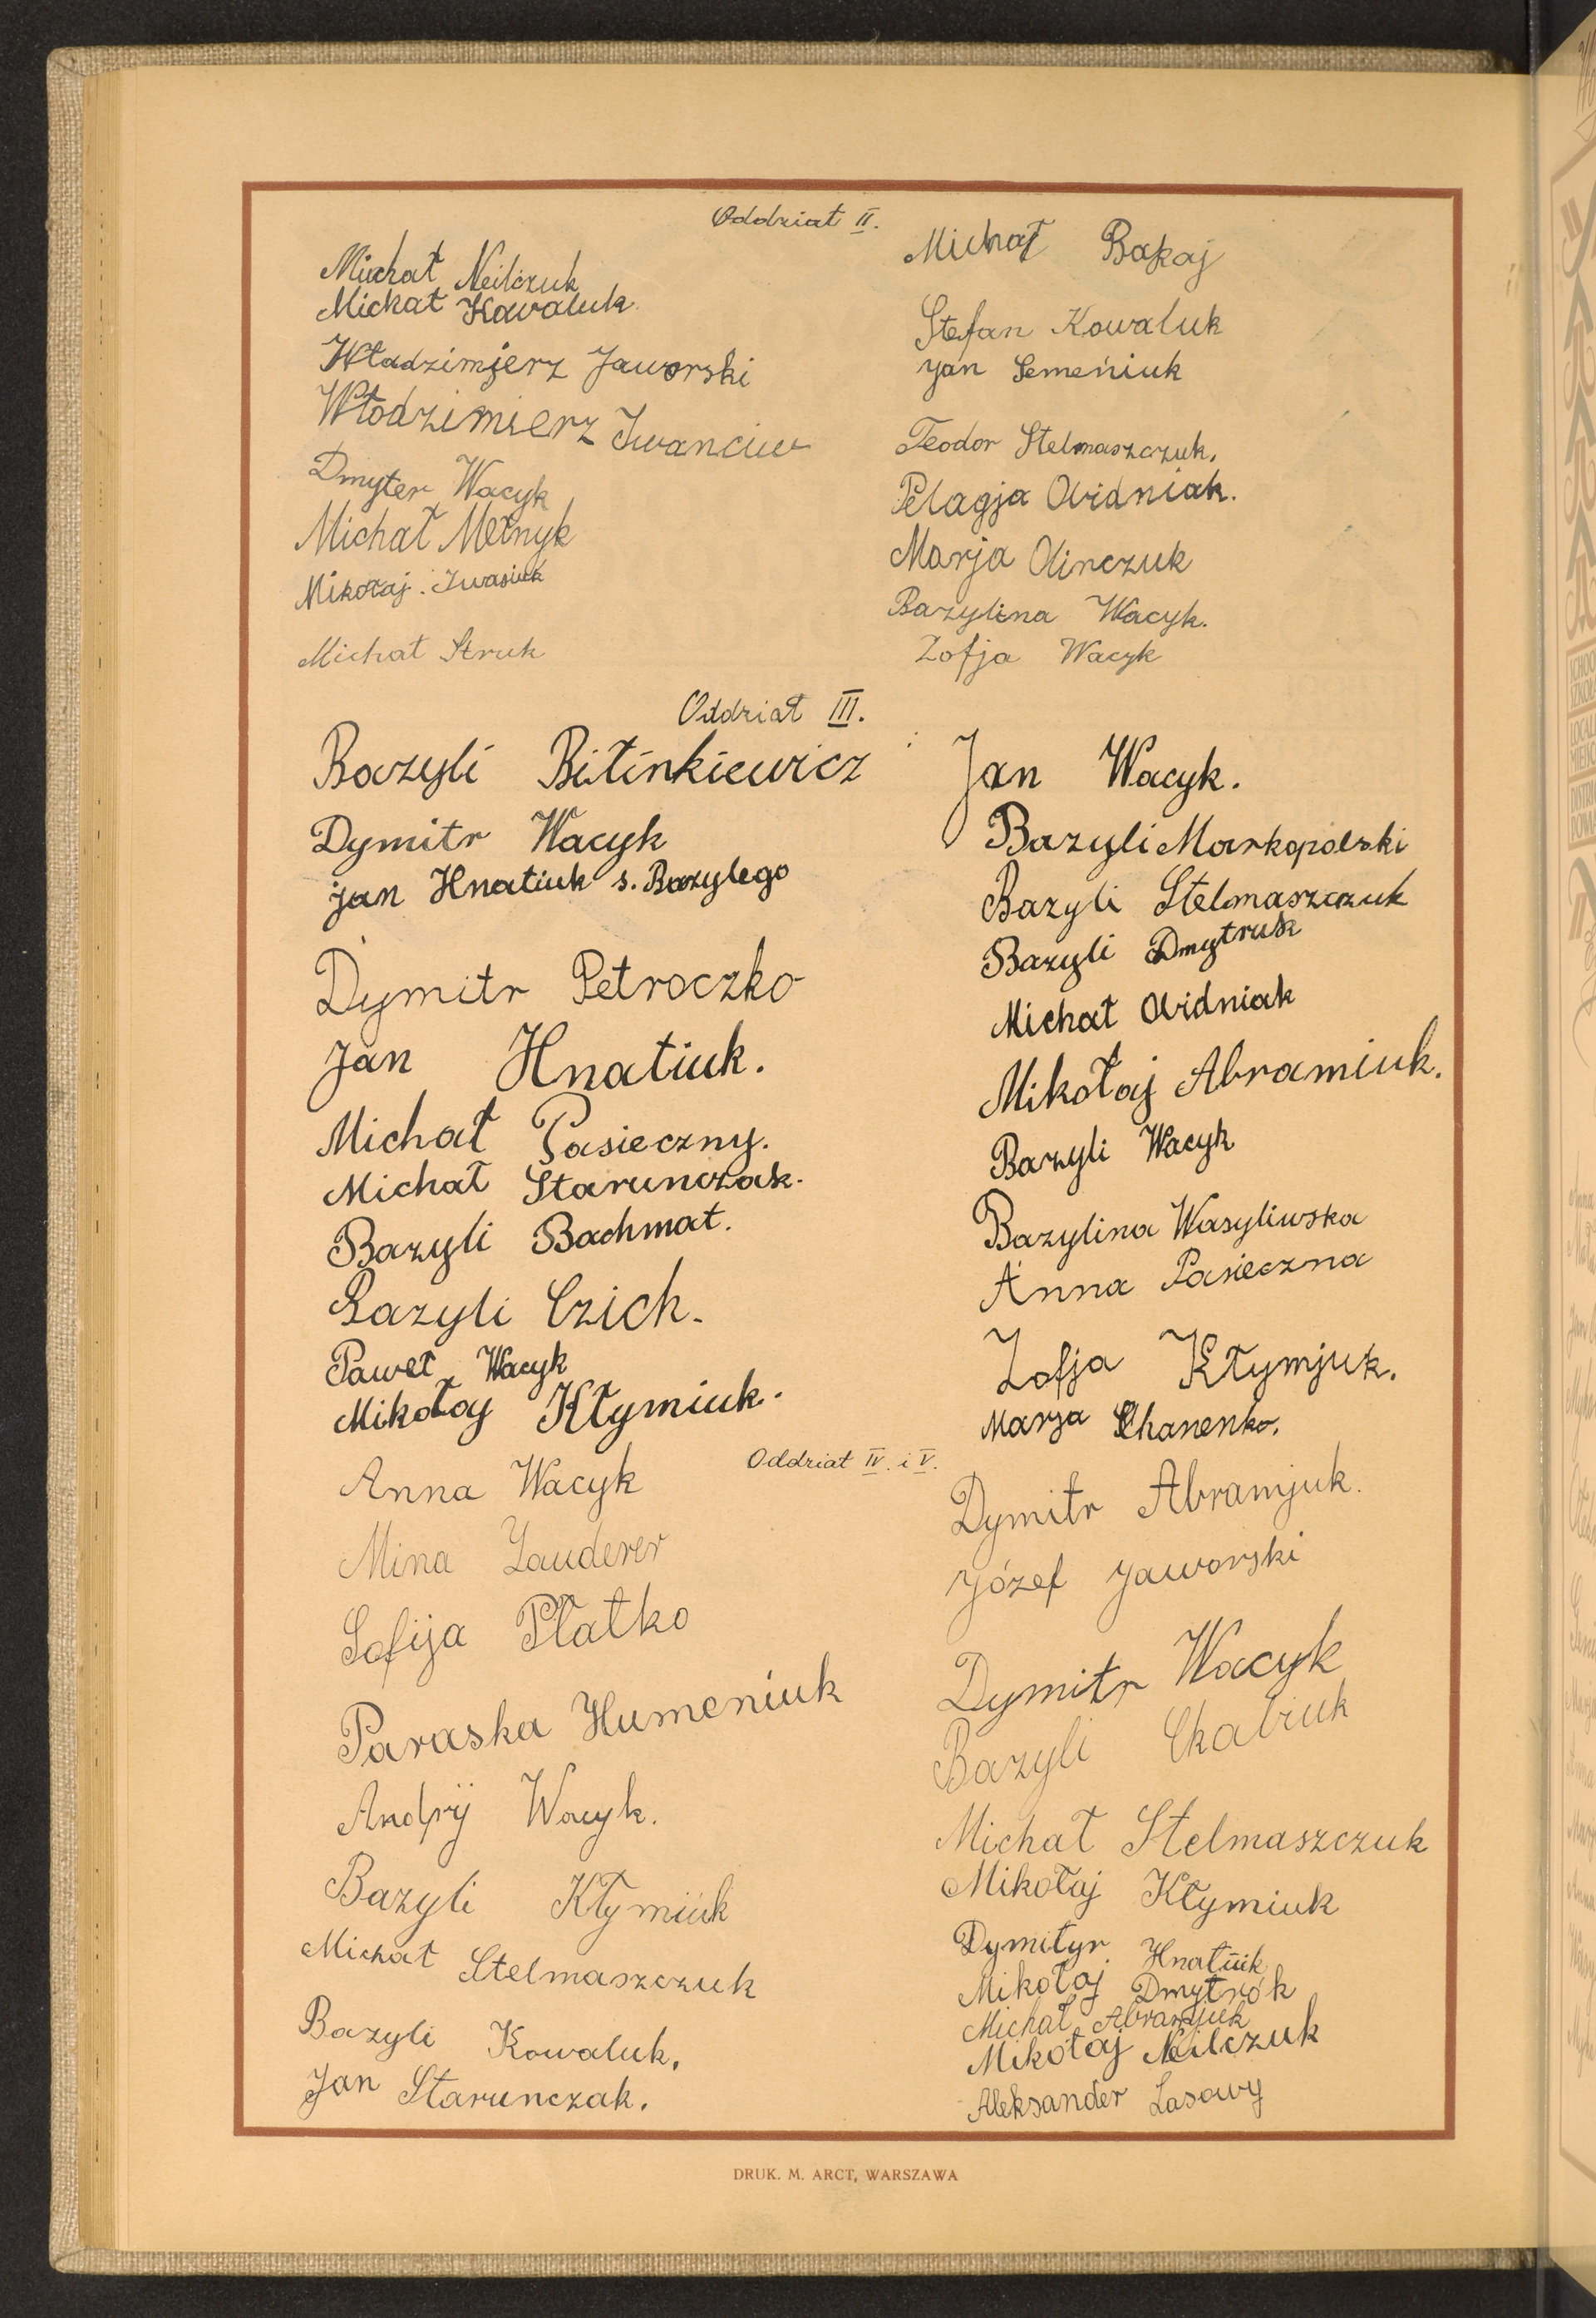 Oddział II.
Michał Neilczuk
Michał Kowaluk
Władzimjerz Jaworski
Włodzimierz Iwanciw
Dmyter Wacyk
Michał Mełnyk
Mikołaj Iwasiuk
Michał Struk
Michał Bakaj
Stefan Kowaluk
Jan Semeńiuk
Teodor Stelmaszczuk.
Pelagja Widniak.
Marja Olinczuk
Bazylina Wacyk.
Zofja Wacyk
Oddział III.
Bazyli Bitinkiewicz
Dymitr Wacyk
Jan Hnatiuk s. Bazylego
Dymitr Petroczko
Jan Hnatiuk.
Michał Pasieczny.
Michał Starunczak.
Bazyli Bachmat.
Bazyli Czich.
Paweł Wacyk
Mikołoj Kłymiuk.
Jan Wacyk.
Bazyli Markopolski
Bazyli Stelmaszczuk
Bazyli Dmytruk
Michał Widniak
Mikołaj Abramiuk.
Bazyli Wacyk
Bazylina Wasyliwska
Anna Pasieczna
Zofja Kłymjuk.
Marja Chanenko.
Oddział IV. i V.
Anna Wacyk
Mina Lauderer
Sofija Płatko
Paraska Humeniuk
Andrij Wacyk.
Bazyli Kłymiuk
Michał Stelmaszczuk
Bazyli Kowaluk.
Jan Starunczak.
Dymitr Abramjuk.
Józef Jaworski
Dymitr Wacyk
Bazyli
Michał Stelmaszczuk
Mikołaj Kłymiuk
Dymityr Hnatiuk
Mikołaj Dmytrók
Michał Abramjuk
Mikołaj Neilczuk
Aleksander Lasowy
DRUK. M. ARCT, WARSZAWA